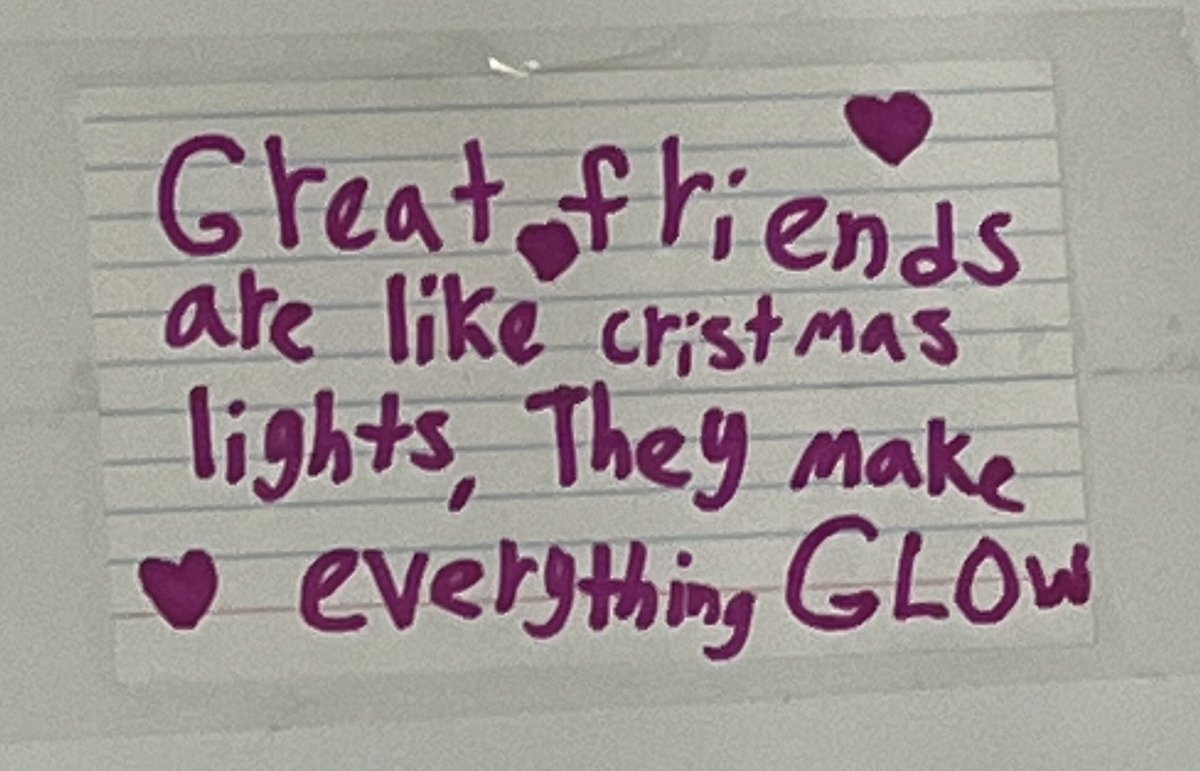 Great friends
are like cristmas
lights, They make
everything GLOW